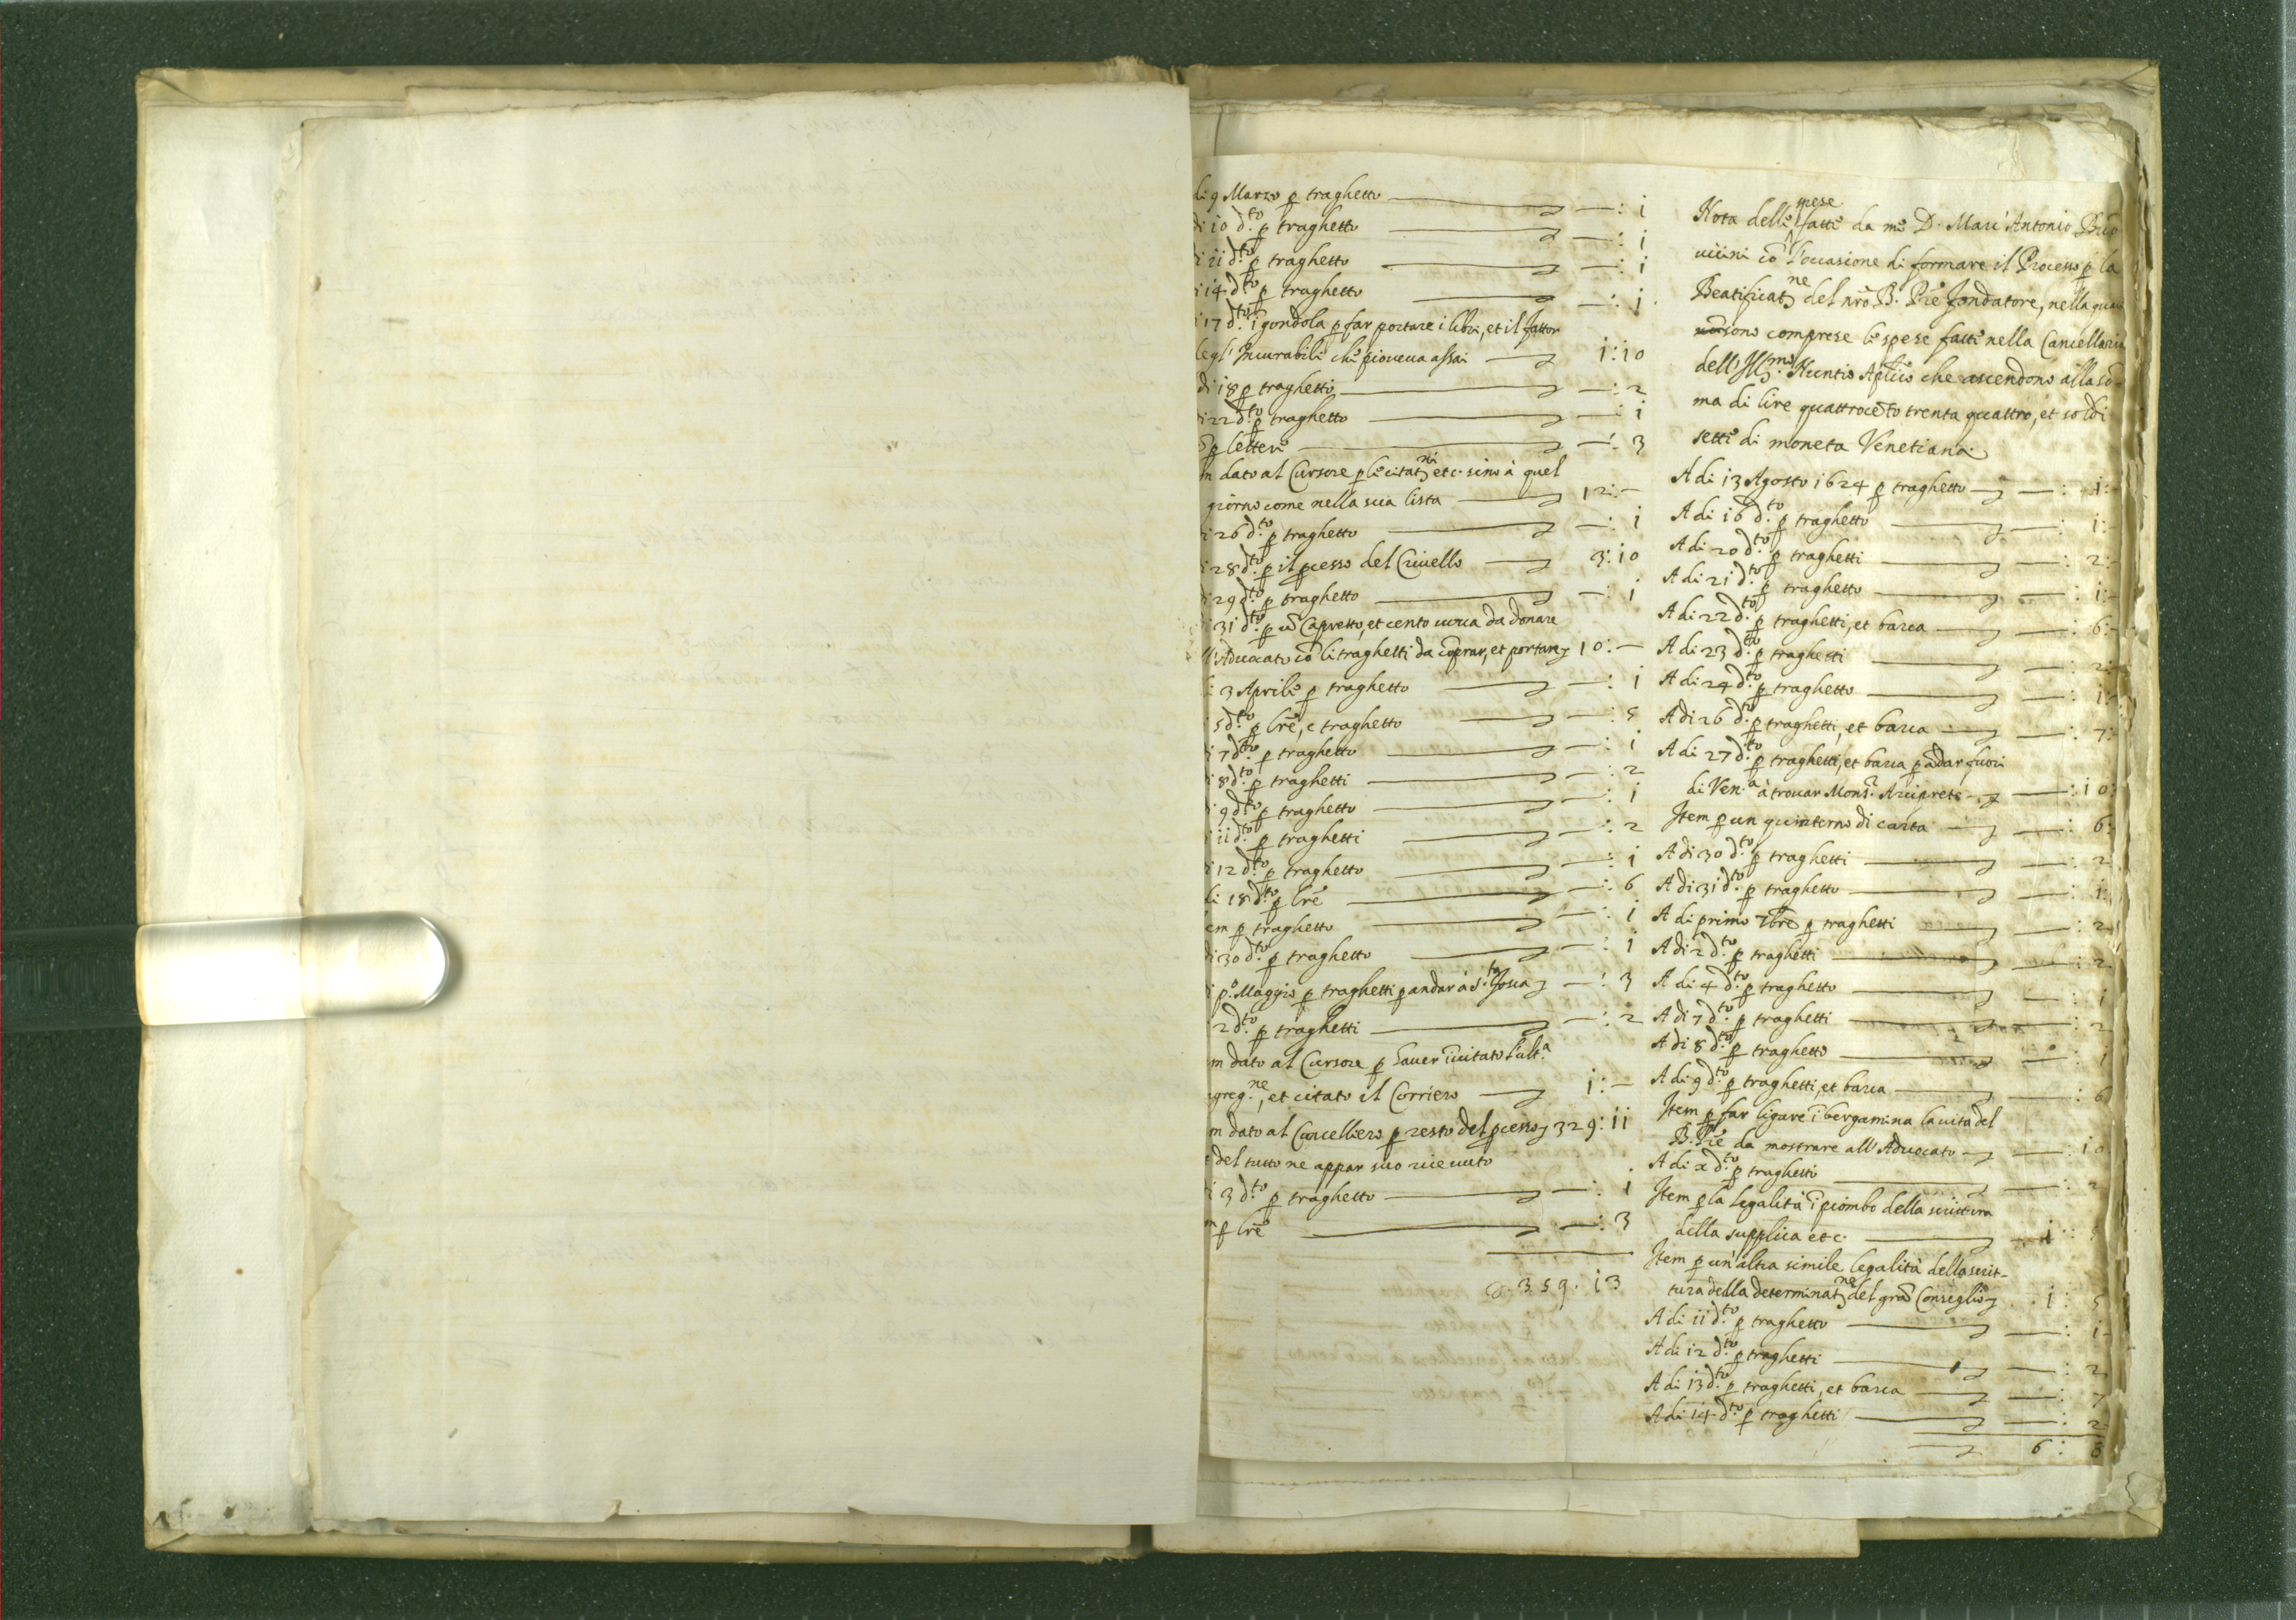 di 9 Marzo p traghetto — —: i
di i0 d.to p traghetto — —: i
di ii d.to p traghetto — —: i
di i4 d.to p traghetto — —: i
i7 d.to i gondola p far portare i libri, et il fattor
degl' Incurabili che pioveua assai — i: i0
di i8 p traghetti — —: 2
di 22 d.to p traghetto — —: i
p lettere — —: 3
m dato al Cursore p le citat.ni etc. sino à quel
giorno come nella sua lista — 12: —
di 26 d.to p traghetto — —: i
28 d.to p il pcesso del Criuello — 3: i0
di 29 d.to p traghetto — —: i
3i d.to p ū Capretto, et cento uoua da donare
all'Aduocato cō li traghetti da cōprar, et portar 10: —
di 3 Aprile p traghetto — —: i
5 d.to p lrē, e traghetto — —: 5
di 7 d.to p traghetto — —: i
di 8 d.to p traghetti — —: 2
di 9 d.to p traghetto — —: i
di ii d.to p traghetti — —: 2
di i2 d.to p traghetto — —: i
di 18 d.to p lrē — —: 6
em p traghetto — —: i
di 30 d.to p traghetto — —: i
di p.o Maggio p traghetti p andar à S.ta Fosca —: 3
2 d.to p traghetti — —: 2
m dato al Cursore p hauer īuitato l'ult.a
greg.ne, et citato il Corriero — i: —
m dato al Cancelliero p resto del pcesso 329: ii
del tutto ne appar suo riceuuto
di 3 d.to p traghetto — —: i
m p lrē — —: 3
359. i3
Nota delle spese fatte da me D. Marc' Antonio Buō
uicini cō l'occasione di formare il Processo p la
Beatificat.ne del nrō B. Prē fondatore, nella quale
sono comprese le spese fatte nella Cancellaria
dell' Ill.mo Nuntio Aplico che ascendono alla sō-
ma di lire quattrocēto trenta quattro, et soldi
sette di moneta Venetiana.
A di 13 Agosto 1624 p traghetto — —: 1: -
A di i6 d.to p traghetto — —: 1: -
A di 20 d.to p traghetti — —: 2: -
A di 2i d.to p traghetto — —: 1: -
A di 22 d.to p traghetti, et barca — —: 6: -
A di 23 d.to p traghetti — —: 2: -
A di 24 d.to p traghetto — —: 1: -
A di 26 d.to p traghetti, et barca — —: 7: -
A di 27 d.to p traghetti, et barca p ādar fuori
di Ven.a à trouar Mons.r Arciprete — —: i0
Item p un quinterno di carta — —: 6:
A di 30 d.to p traghetti — —: 2
A di 3i d.to p traghetto — —: i:
A di primo 7bre p traghetti — —: 2
A di 2 d.to p traghetti — —: 2
A di 4 d.to p traghetto — —: i
A di 7 d.to p traghetti — —: 2
A di 8 d.to p traghetto — —: i
A di 9 d.to p traghetti, et barca — —: 6
Item p far ligare ī bergamina la uita del
B. Prē da mostrare all' Aduocato — —: i0
A di x d.to p traghetti — —: 2
Item p la legalità ī piombo della scrittura
della supplica etc. — i: 5
Item p un'altra simile legalità della scrit-
tura della determinat.ne del grā Conseglio — i: 5
A di ii d.to p traghetto — —: i
A di 12 d.to p traghetti — —: 2
A di i3 d.to p traghetti, et barca — —: 7
A di 14 d.to p traghetti — —: 2
— 6: 8